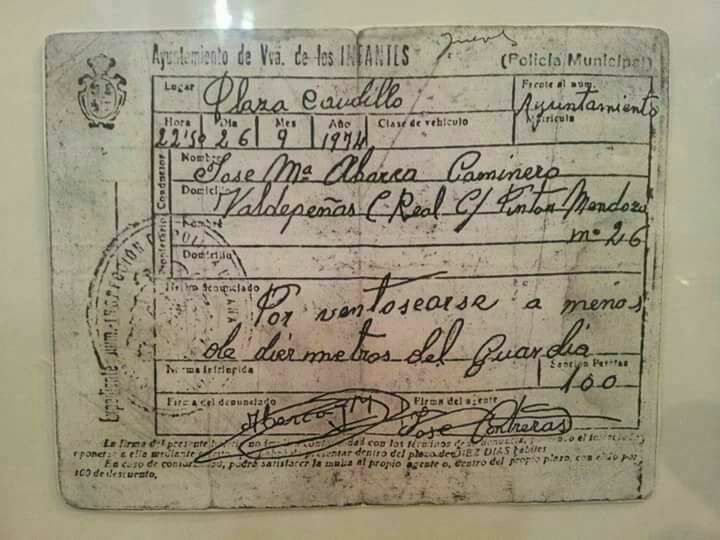 Ayuntamiento de Vva. de los INFANTES (Policía Municipal)
Lugar Plaza Caudillo Frente al núm. Ayuntamiento
Hora Día Mes Año Clase de vehículo Matrícula
22'50 26 9 1974
Conductor Nombre Jose Mª Abarca Caminero
Domicilio Valdepeñas C. Real C/ Pintor Mendoza
nº 26
Propietario Nombre
Domicilio
Hecho denunciado
Por ventosearse a menos
de diez metros del Guardia
Norma infringida Sanción Pesetas
100
Firma del denunciado Firma del agente
Abarca J M Jose Contreras
La firma del presente no implica conformidad con los términos de la denuncia, pudiendo el interesado
oponerse a ella mediante presentar dentro del plazo de DIEZ DIAS hábiles
En caso de conformidad, podrá satisfacer la multa al propio agente o, dentro del propio plazo, con el 20 por
100 de descuento.
Expediente núm.